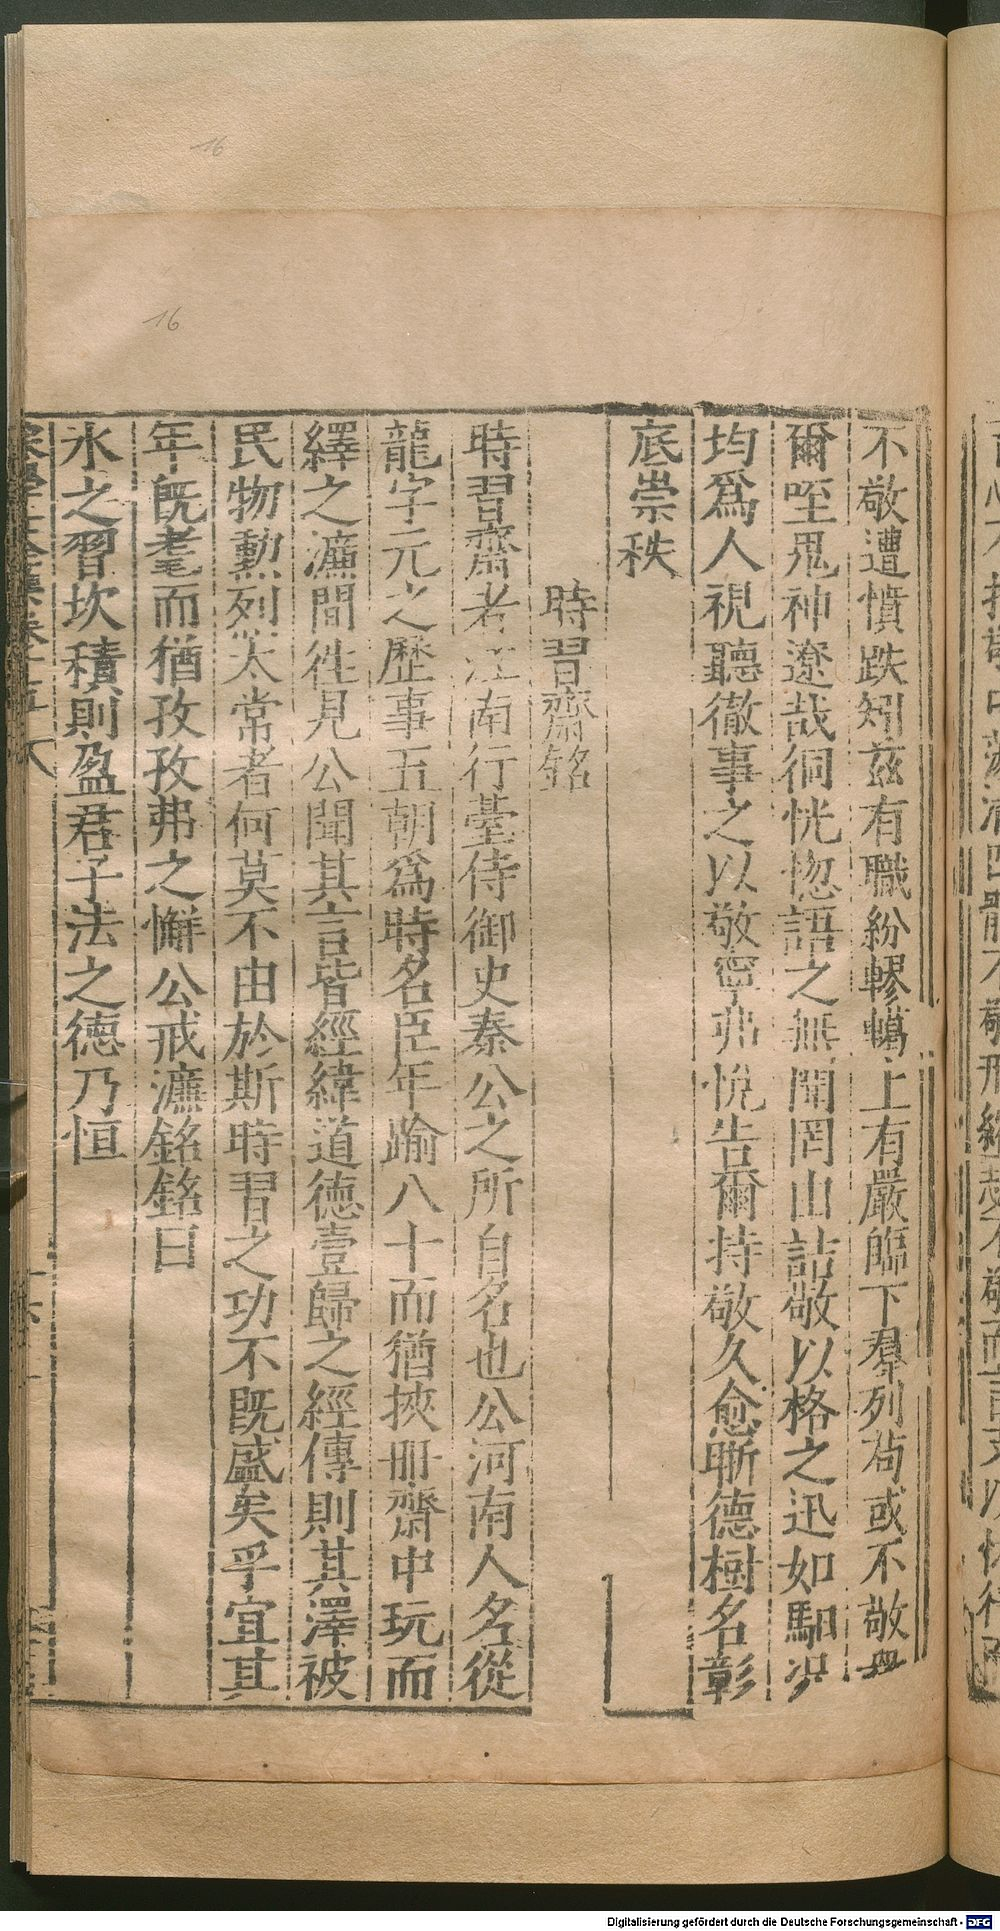 不敬遭憤跌矧茲有職紛轇轕上有嚴臨下羣列苟或不敬
爾咥鬼神遼哉徊恍惚語之無聞罔山詰敬以格之迅如馹況
均爲人視聽徹事之以敬寧弗悅告爾持敬久愈晣德樹名彰
底崇秩
時習齋銘
時習齋者江南行臺侍御史秦公之所自名也公河南人名從
龍字元之歷事五朝爲時名臣年踰八十而猶挾冊齋中玩而
繹之濂間徃見公聞其言皆經緯道德壹歸之經傳則其澤被
民物勲烈太常者何莫不由於斯時習之功不既盛矣乎宜其
年既耄而猶孜孜弗之懈公戒濂銘銘曰
水之習坎積則盈君子法之德乃恒
16
16
Digitalisierung gefördert durch die Deutsche Forschungsgemeinschaft - DFG